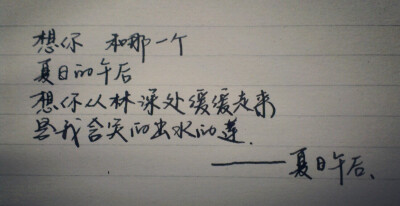 想你 和那一个
夏日的午后
想你从林深处缓缓走来
是我含笑的出水的莲.
——夏日午后、